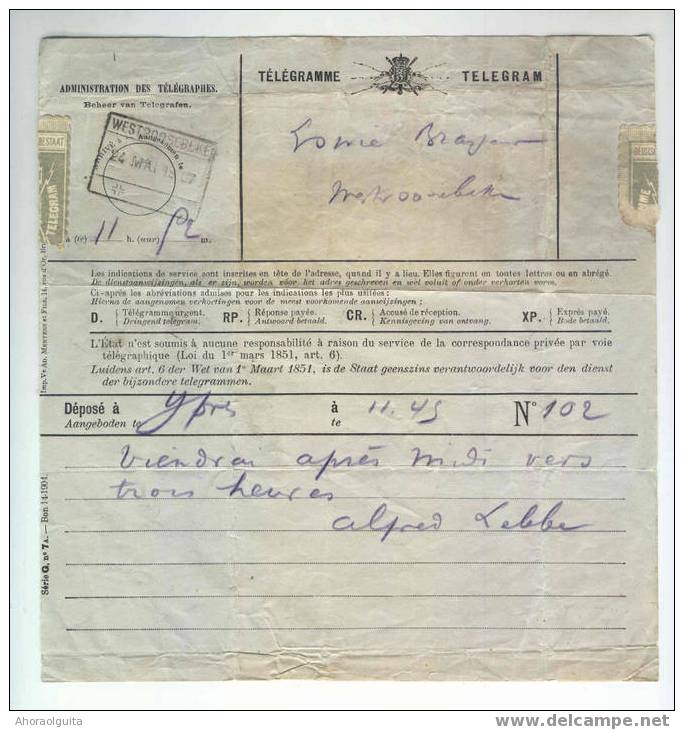 ADMINISTRATION DES TÉLÉGRAPHES.
Beheer van Telegrafen.
TÉLÉGRAMME TELEGRAM
WESTROOSEBEKE
24 MAI
BESTAAT
TELEGRAM
Westroosebeke
à (te) 11 h. (uur) 52 m.
Les indications de service sont inscrites en tête de l'adresse, quand il y a lieu. Elles figurent en toutes lettres ou en abrégé.
De dienstaanwijzingen, als er zijn, worden vóór het adres geschreven en wel voluit of onder verkorten vorm.
Ci-après les abréviations admises pour les indications les plus utiles :
Hierna de aangenomen verkortingen voor de meest voorkomende aanwijzingen :
D. Télégramme urgent. Dringend telegram. RP. Réponse payée. Antwoord betaald. CR. Accusé de réception. Kennisgeving van ontvang. XP. Exprès payé. Bode betaald.
L'État n'est soumis à aucune responsabilité à raison du service de la correspondance privée par voie
télégraphique (Loi du 1er mars 1851, art. 6).
Luidens art. 6 der Wet van 1n Maart 1851, is de Staat geenszins verantwoordelijk voor den dienst
der bijzondere telegrammen.
Déposé à Ypres à 11.45 N° 102
Aangeboden te te
Viendrai après midi vers
trois heures
Alfred Lebbe
Série G, n° 7A. — Bon 14-1904.
Ahoraolguita
www.delcampe.net